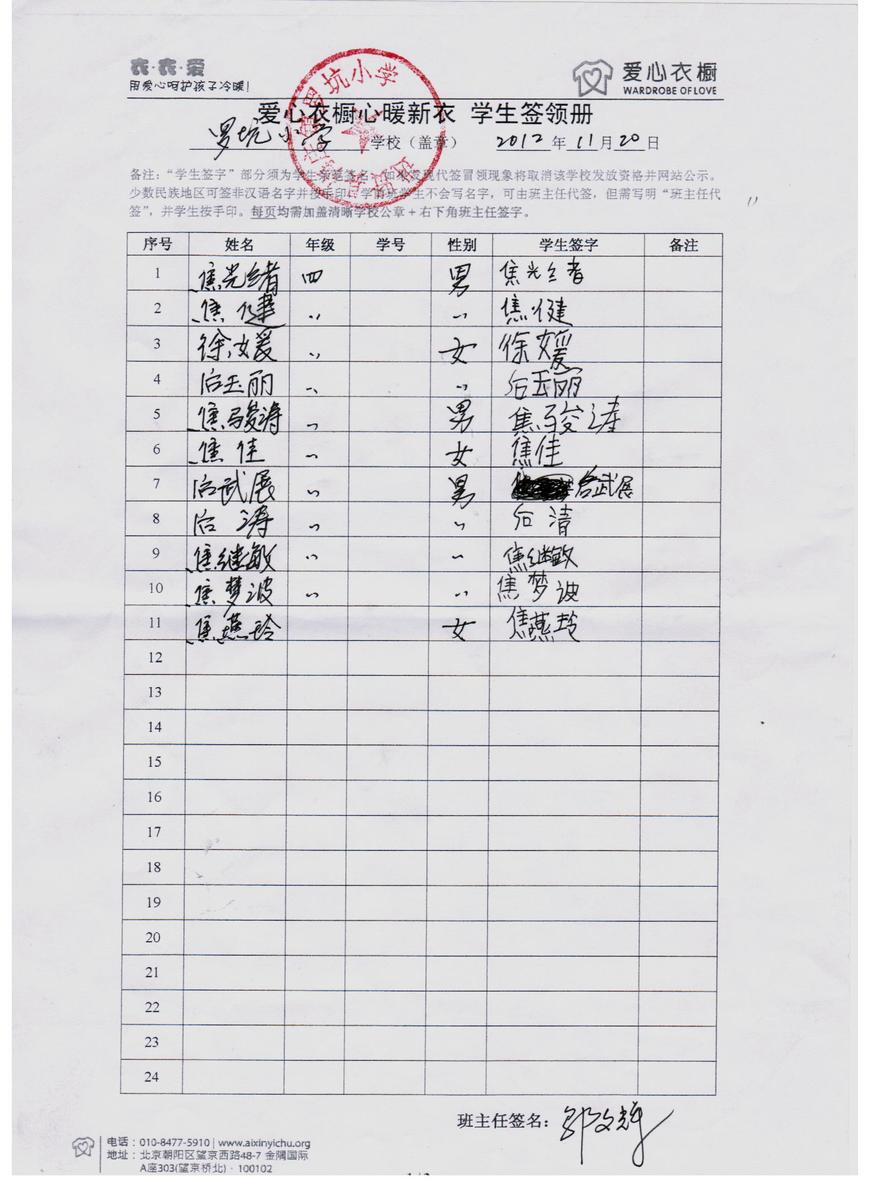 衣·衣·爱
用爱心呵护孩子冷暖!
爱心衣橱
WARDROBE OF LOVE
罗坑小学
爱心衣橱心暖新衣 学生签领册
罗坑小学 学校（盖章） 2012年11月20日
备注：“学生签字”部分须为学生亲笔签名，如果发现代签冒领现象将取消该学校发放资格并网站公示。
少数民族地区可签非汉语名字并按手印。学前班学生不会写名字，可由班主任代签，但需写明“班主任代
签”，并学生按手印。每页均需加盖清晰学校公章+右下角班主任签字。
序号 姓名 年级 学号 性别 学生签字 备注
1 焦光绪 四 男 焦光绪
2 焦健 〃 〃 焦健
3 徐媛 〃 女 徐媛
4 后玉丽 〃 〃 后玉丽
5 焦骏涛 〃 男 焦骏涛
6 焦佳 〃 女 焦佳
7 后武展 〃 男 后武展
8 后涛 〃 〃 后清
9 焦继敏 〃 〃 焦继敏
10 焦梦波 〃 〃 焦梦波
11 焦燕玲 女 焦燕玲
12
13
14
15
16
17
18
19
20
21
22
23
24
班主任签名：
电话：010-8477-5910 | www.aixinyichu.org
地址：北京朝阳区望京西路48-7 金隅国际
A座303(望京桥北)·100102